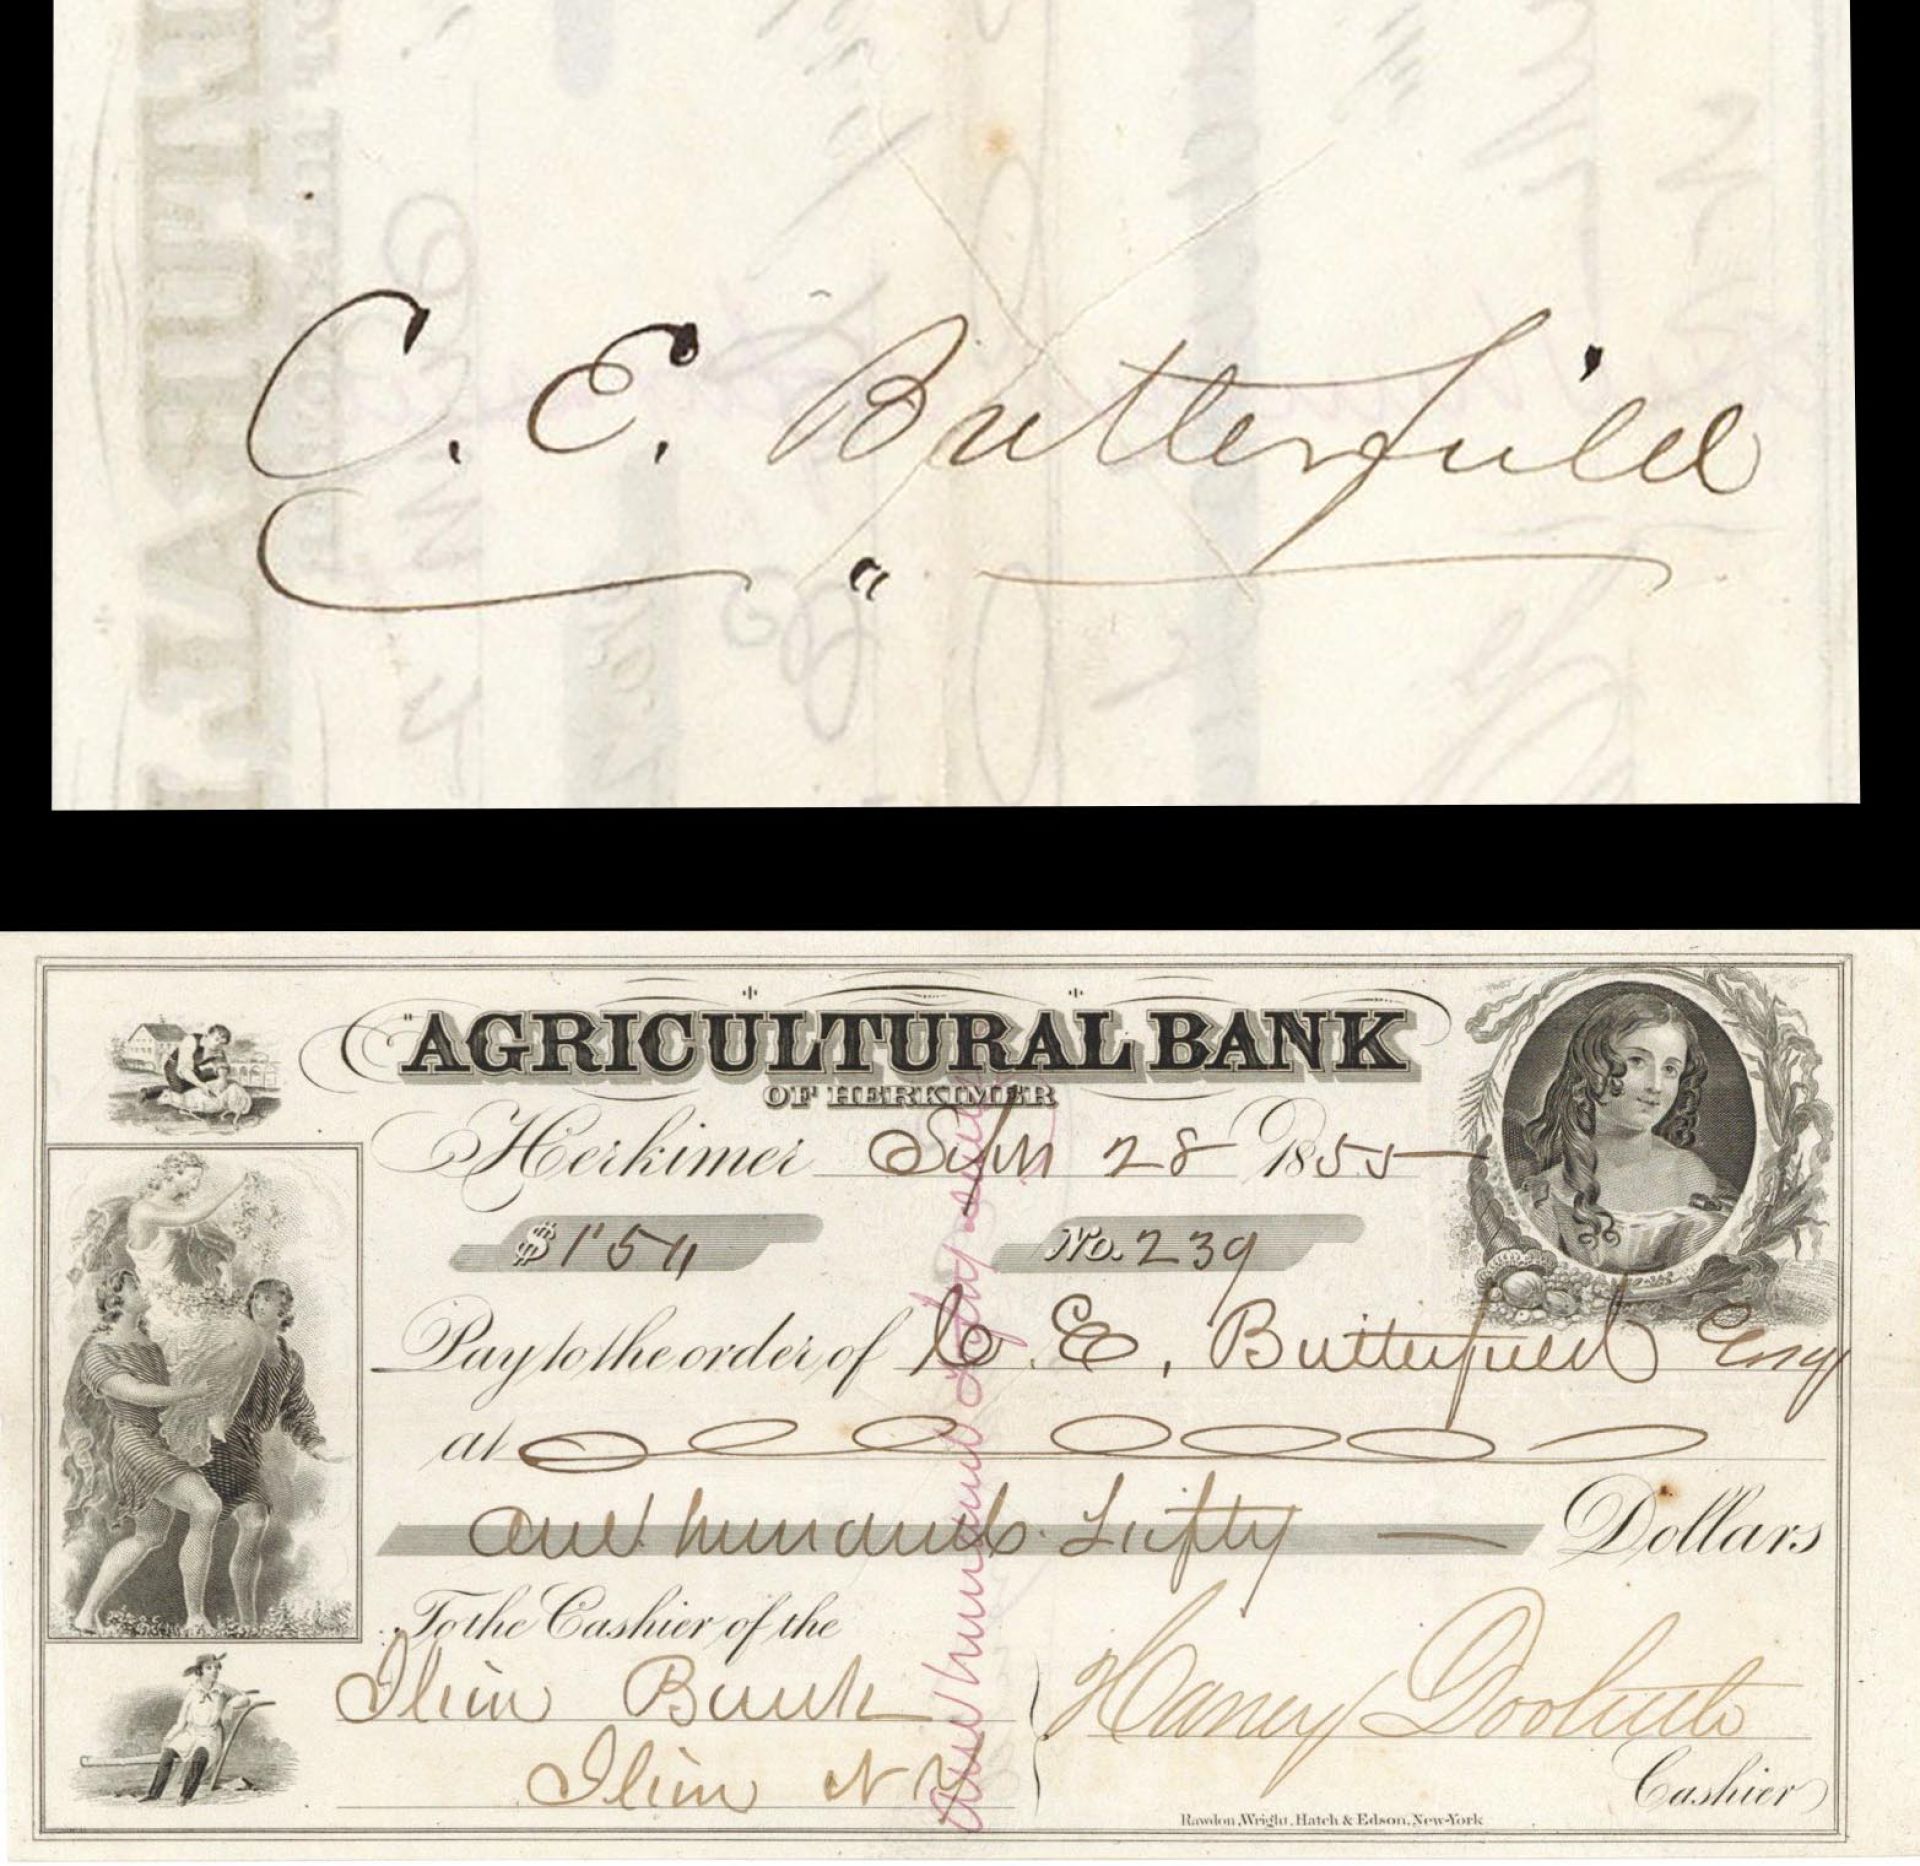 C. E. Butterfield
AGRICULTURAL BANK
OF HERKIMER
Herkimer Sept 28 1855
$ 150
No. 239
Pay to the order of C. E. Butterfield Esq
at
One hundred & fifty Dollars
To the Cashier of the
Ilion Bank
Ilion N Y
Harvey Doolittle
Cashier
Rawdon, Wright, Hatch & Edson, New-York
One hundred & fifty